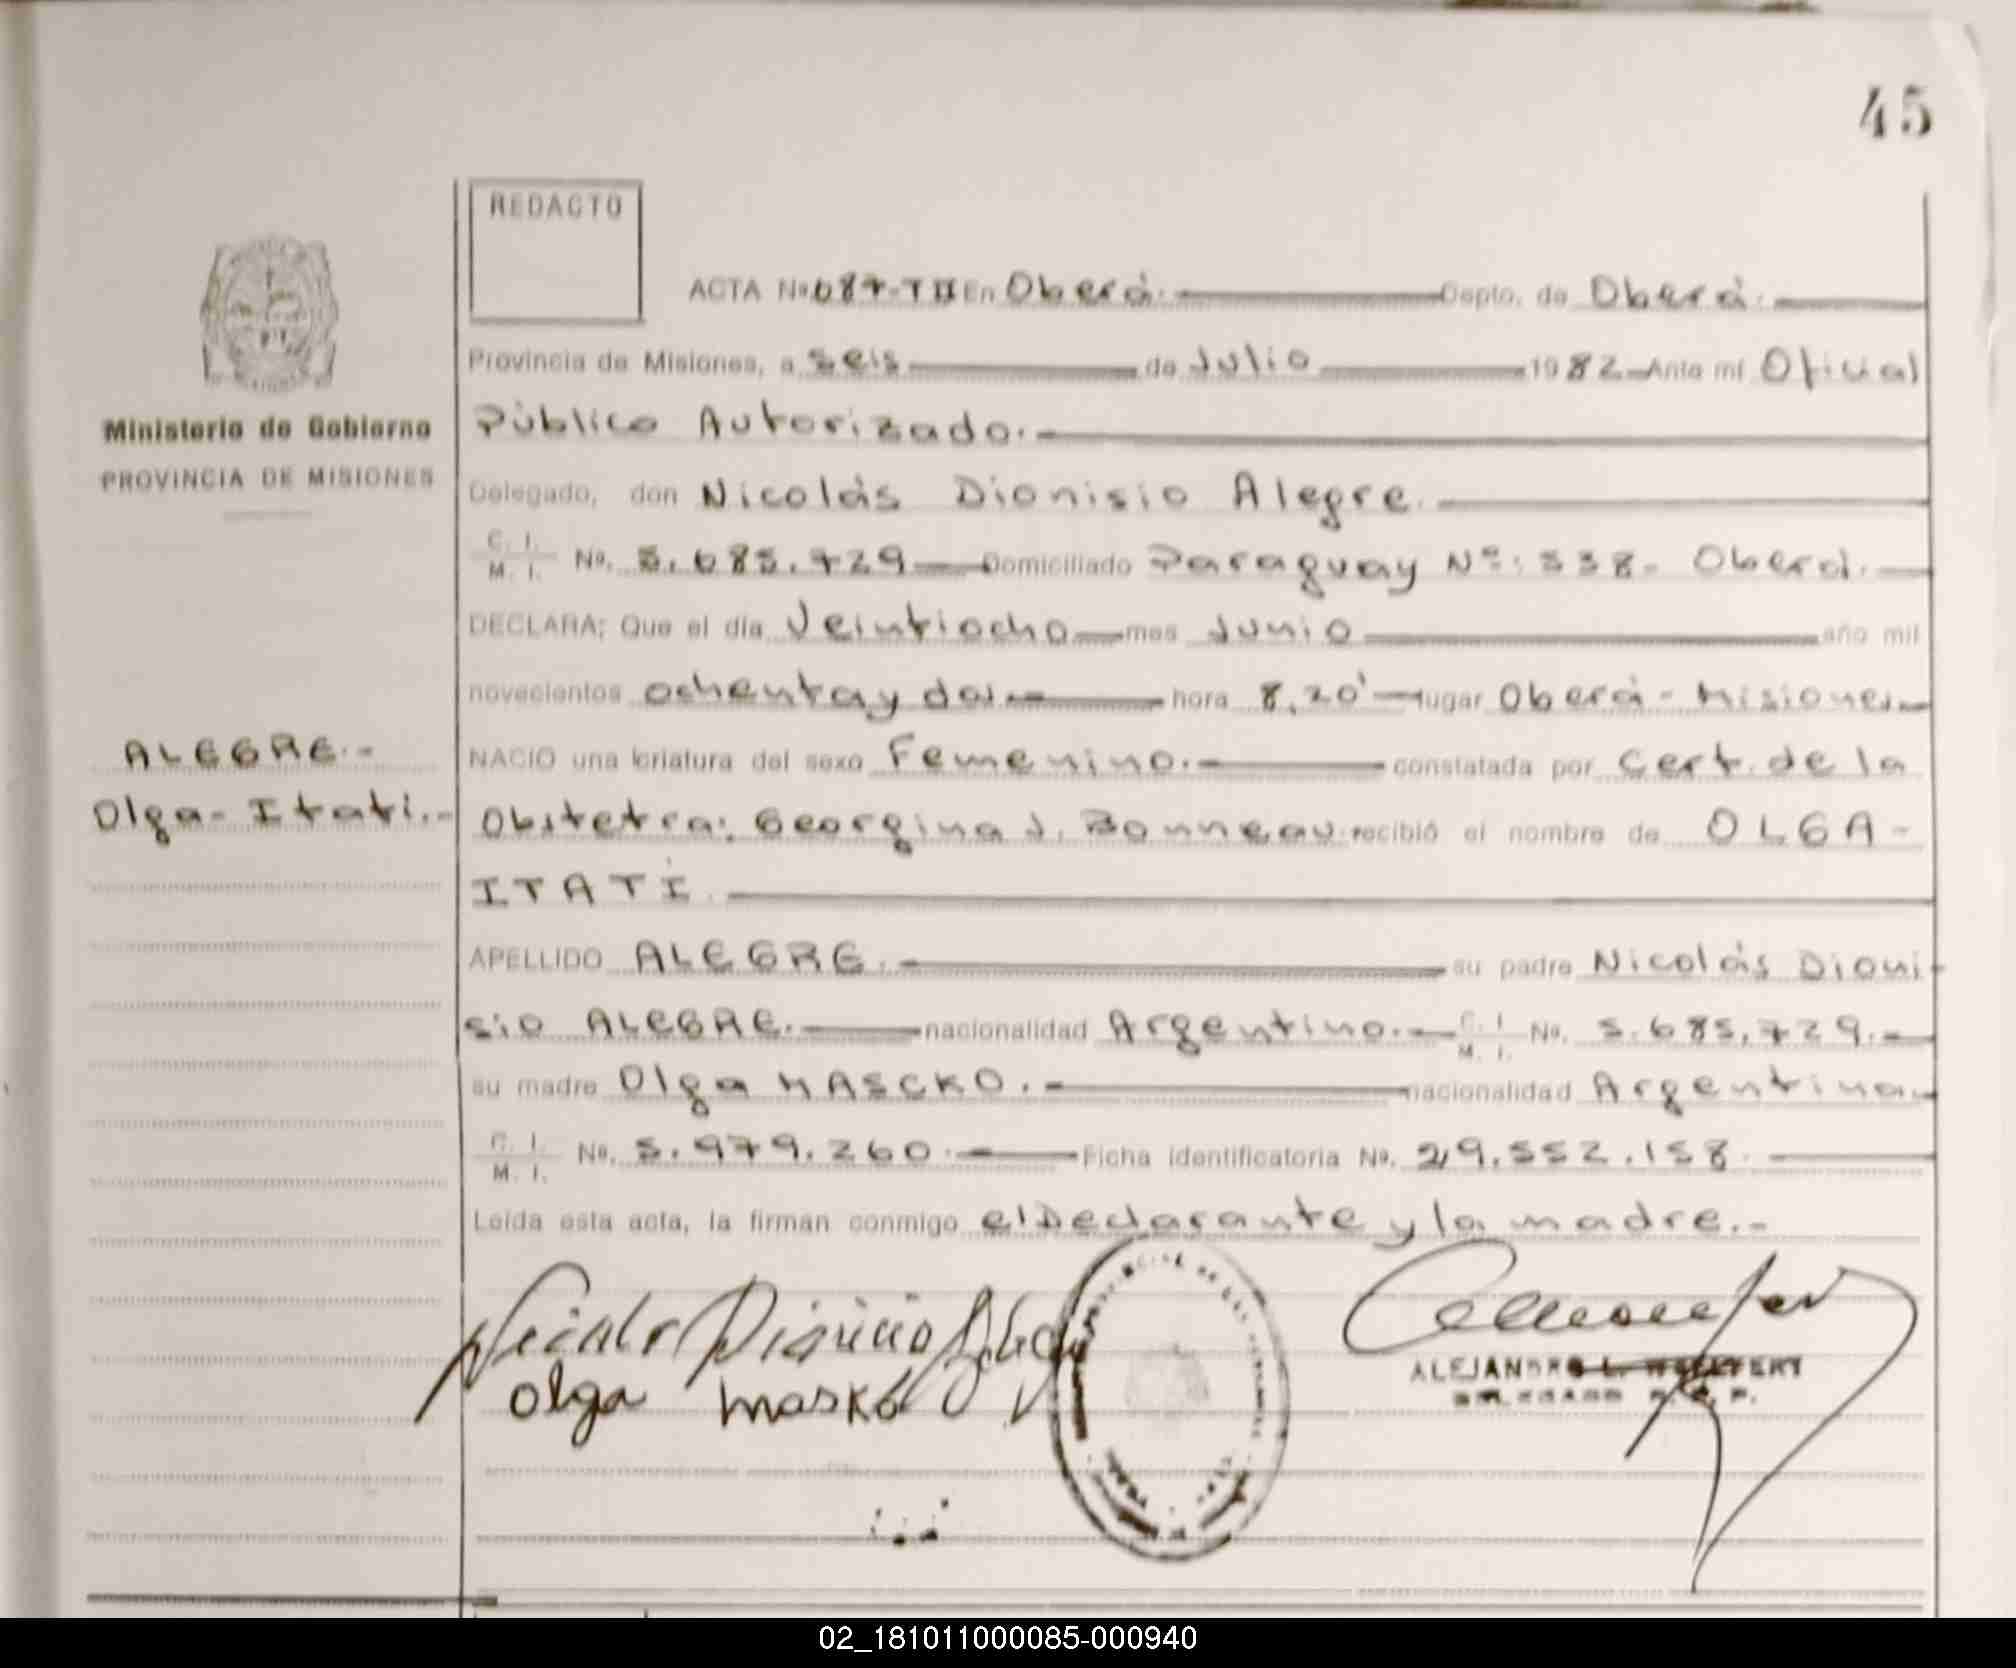 45
REDACTO
ACTA Nº 687-TII En Oberá.- Depto. de Oberá.-
Provincia de Misiones, a seis de Julio 1982.- Ante mí Oficial
Público Autorizado.-
Ministerio de Gobierno
PROVINCIA DE MISIONES
Delegado, don Nicolás Dionisio Alegre.-
C. I.
M. I. Nº. 5.685.729 Domiciliado Paraguay Nº: 338- Oberá.-
DECLARA; Que el día Veintiocho mes Junio año mil
novecientos ochenta y dos.- hora 8,20' lugar Oberá - Misiones.-
ALEGRE.-
NACIO una criatura del sexo Femenino.- constatada por Cert. de la
Olga- Itatí.-
Obstetra: Georgina J. Bonneau recibió el nombre de OLGA-
ITATÍ.-
APELLIDO ALEGRE.- su padre Nicolás Dioni-
sio ALEGRE.- nacionalidad Argentino.- C. I.
M. I. Nº. 5.685.729.-
su madre Olga MASCKO.- nacionalidad Argentina.-
C. I.
M. I. Nº. 5.979.260.- Ficha identificatoria Nº. 29.552.158.-
Leída esta acta, la firman conmigo el Declarante y la madre.-
Dionicio
Olga Masko
ALEJANDRO L.
DELEGADO R. P.
02_181011000085-000940